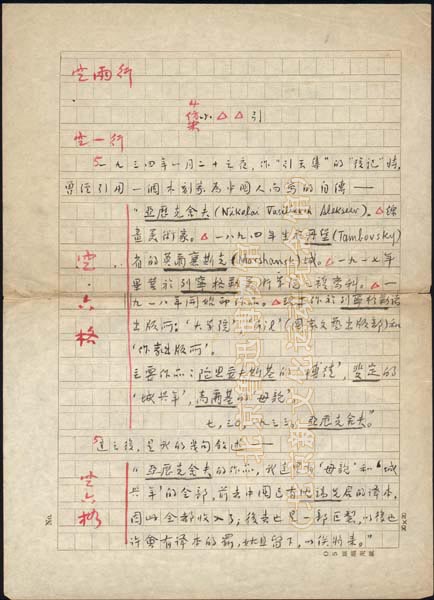 空兩行
4仿宋 △ △ 引
空一行
5 一九三四年一月二十之夜，作“引玉集”的“後記”時，
曾經引用一個木刻家為中國人而寫的自傳——
“亞歷克舍夫(Nikolai Vasilievich Alekseev)。△綫
畫美術家。△一八九四年生於丹堡(Tambovsky)
省的莫爾襄斯克(Morshansk)城。△一九一七年
畢業於列寧格勒美術學院之複寫科。△一
九一八年開始印作品。△現工作於列寧格勒諸
出版所：‘大學院’，(國家文藝出版部)和
‘作家出版所’。
主要作品：陀思妥夫斯基的‘博徒’，斐定的
‘城與年’，高爾基的‘母親’。
七，三〇，一九三三。亞歷克舍夫。”
空·六格
5 這之後，是我的幾句敘述——
“亞歷克舍夫的作品，我這裏有‘母親’和‘城
與年’的全部，前者中國已有沈端先君的譯本，
因此全都收入了；後者也是一部巨製，以後也
許會有譯本的罷，姑且留下，以俟將來。”
空六格
No.